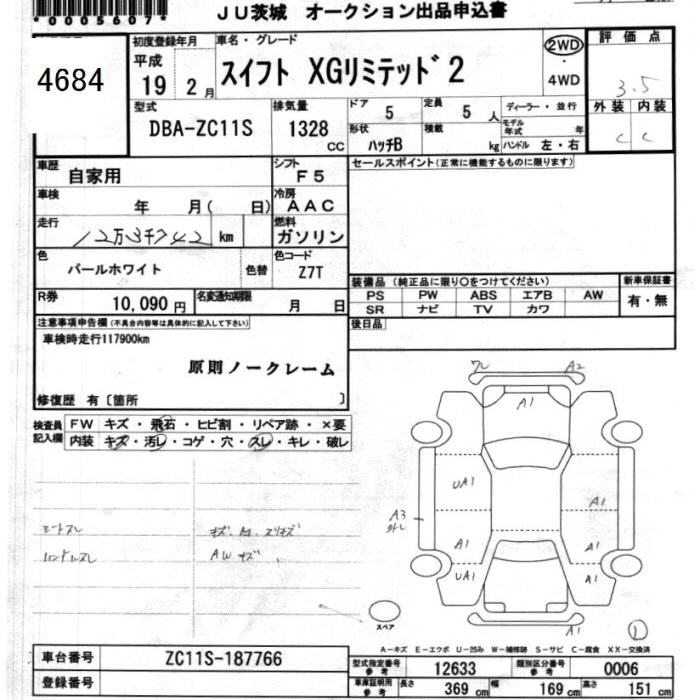 *0005607*
JU茨城 オークション出品申込書
4684
初度登録年月
平成
19 年 2 月
車名・グレード
スイフト XGリミテッド2
2WD
・
4WD
評価点
3.5
外装 内装
C C
型式
DBA-ZC11S
排気量
1328 CC
ドア 5
定員 5 人
形状 ハッチB
積載 kg
ディーラー・並行
モデル年式 年
ハンドル 左・右
車歴 自家用
シフト F5
車検 年 月( 日)
冷房 AAC
走行 12万3千742 km
燃料 ガソリン
色 パールホワイト 色替
色コード Z7T
R券 10,090 円
名変通知期限 月 日
セールスポイント(正常に機能するものに限ります)
装備品 (純正品に限り○をつけてください)
PS PW ABS エアB AW
SR ナビ TV カワ
新車保証書
有・無
後日品
注意事項申告欄(不具合内容等は具体的に記入して下さい)
車検時走行117900km
原則ノークレーム
修復歴 有〔箇所 〕
検査員記入欄
FW キズ・飛石・ヒビ割・リペア跡・×要
内装 キズ・汚レ・コゲ・穴・スレ・キレ・破レ
シートスレ
ハンドルスレ
AWキズ
ワレ
A2
A1
UA1
A1
A3
A1
A1
UA1
A1
A1
スペア
1
A-キズ E-エクボ U-凹み W-補修跡 S-サビ C-腐食 XX-交換済
車台番号 ZC11S-187766
登録番号
型式指定番号 参考 12633
類別区分番号 参考 0006
車庫証明用 参考
長さ 369 cm
幅 169 cm
高さ 151 cm